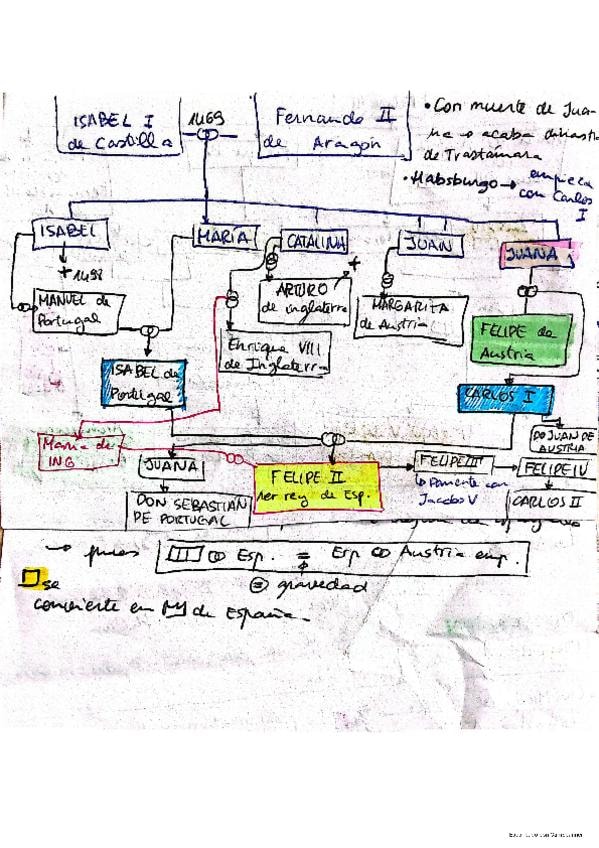 ISABEL I
de Castilla
1469
Fernando II
de Aragón
• Con muerte de Jua-
na → acaba dinastía
de Trastámara
• Habsburgo → empieza
con Carlos
I
ISABEL
MARÍA
CATALINA
JUAN
JUANA
+ 1498
MANUEL de
Portugal
ARTURO
de inglaterra
+
MARGARITA
de Austria
FELIPE de
Austria
Enrique VIII
de Inglaterra
ISABEL de
Portugal
CARLOS I
DO JUAN DE
AUSTRIA
Maria de
ING
JUANA
FELIPE II
1er rey de Esp.
FELIPE III
FELIPE IV
con
Jacobo V
CARLOS II
DON SEBASTIAN
DE PORTUGAL
→ pues
Esp. = Esp Austria emp.
= gravedad
se
convierte en de España.